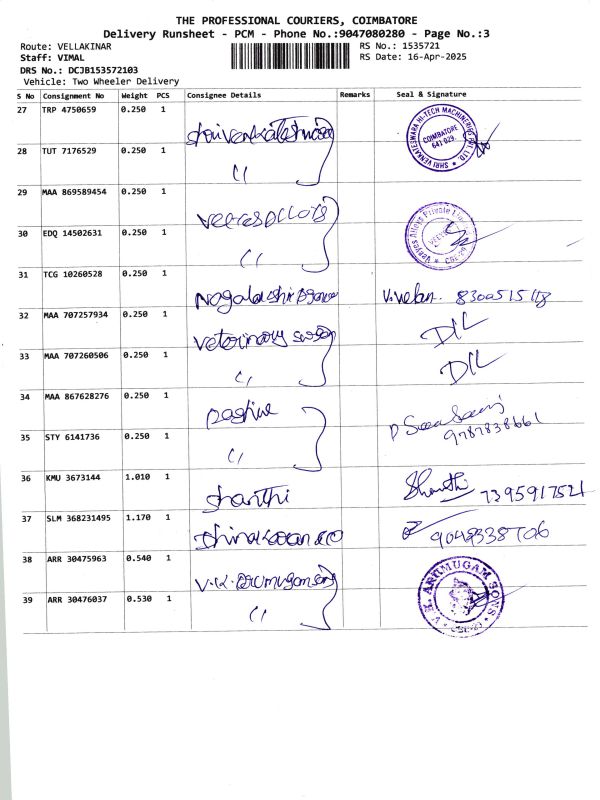 THE PROFESSIONAL COURIERS, COIMBATORE
Delivery Runsheet - PCM - Phone No.:9047080280 - Page No.:3
Route: VELLAKINAR
RS No.: 1535721
Staff: VIMAL
RS Date: 16-Apr-2025
DRS No.: DCJB153572103
Vehicle: Two Wheeler Delivery
S No Consignment No Weight PCS Consignee Details Remarks Seal & Signature
27 TRP 4750659 0.250 1
SHRI VENKATESWARA HI-TECH MACHINERIES PVT. LTD. COIMBATORE 641 029
28 TUT 7176529 0.250 1 〃
29 MAA 869589454 0.250 1
Veeyes Alloys Private Limited CBE-29
30 EDQ 14502631 0.250 1 〃
31 TCG 10260528 0.250 1 V.velan.
32 MAA 707257934 0.250 1 veterinary D/L
33 MAA 707260506 0.250 1 〃 D/L
34 MAA 867628276 0.250 1 9787838661
35 STY 6141736 0.250 1 〃
36 KMU 3673144 1.010 1 shanthi Shanthi 7395917521
37 SLM 368231495 1.170 1
38 ARR 30475963 0.540 1 V.K. Arumugam sons V.K. ARUMUGAM SONS
39 ARR 30476037 0.530 1 〃